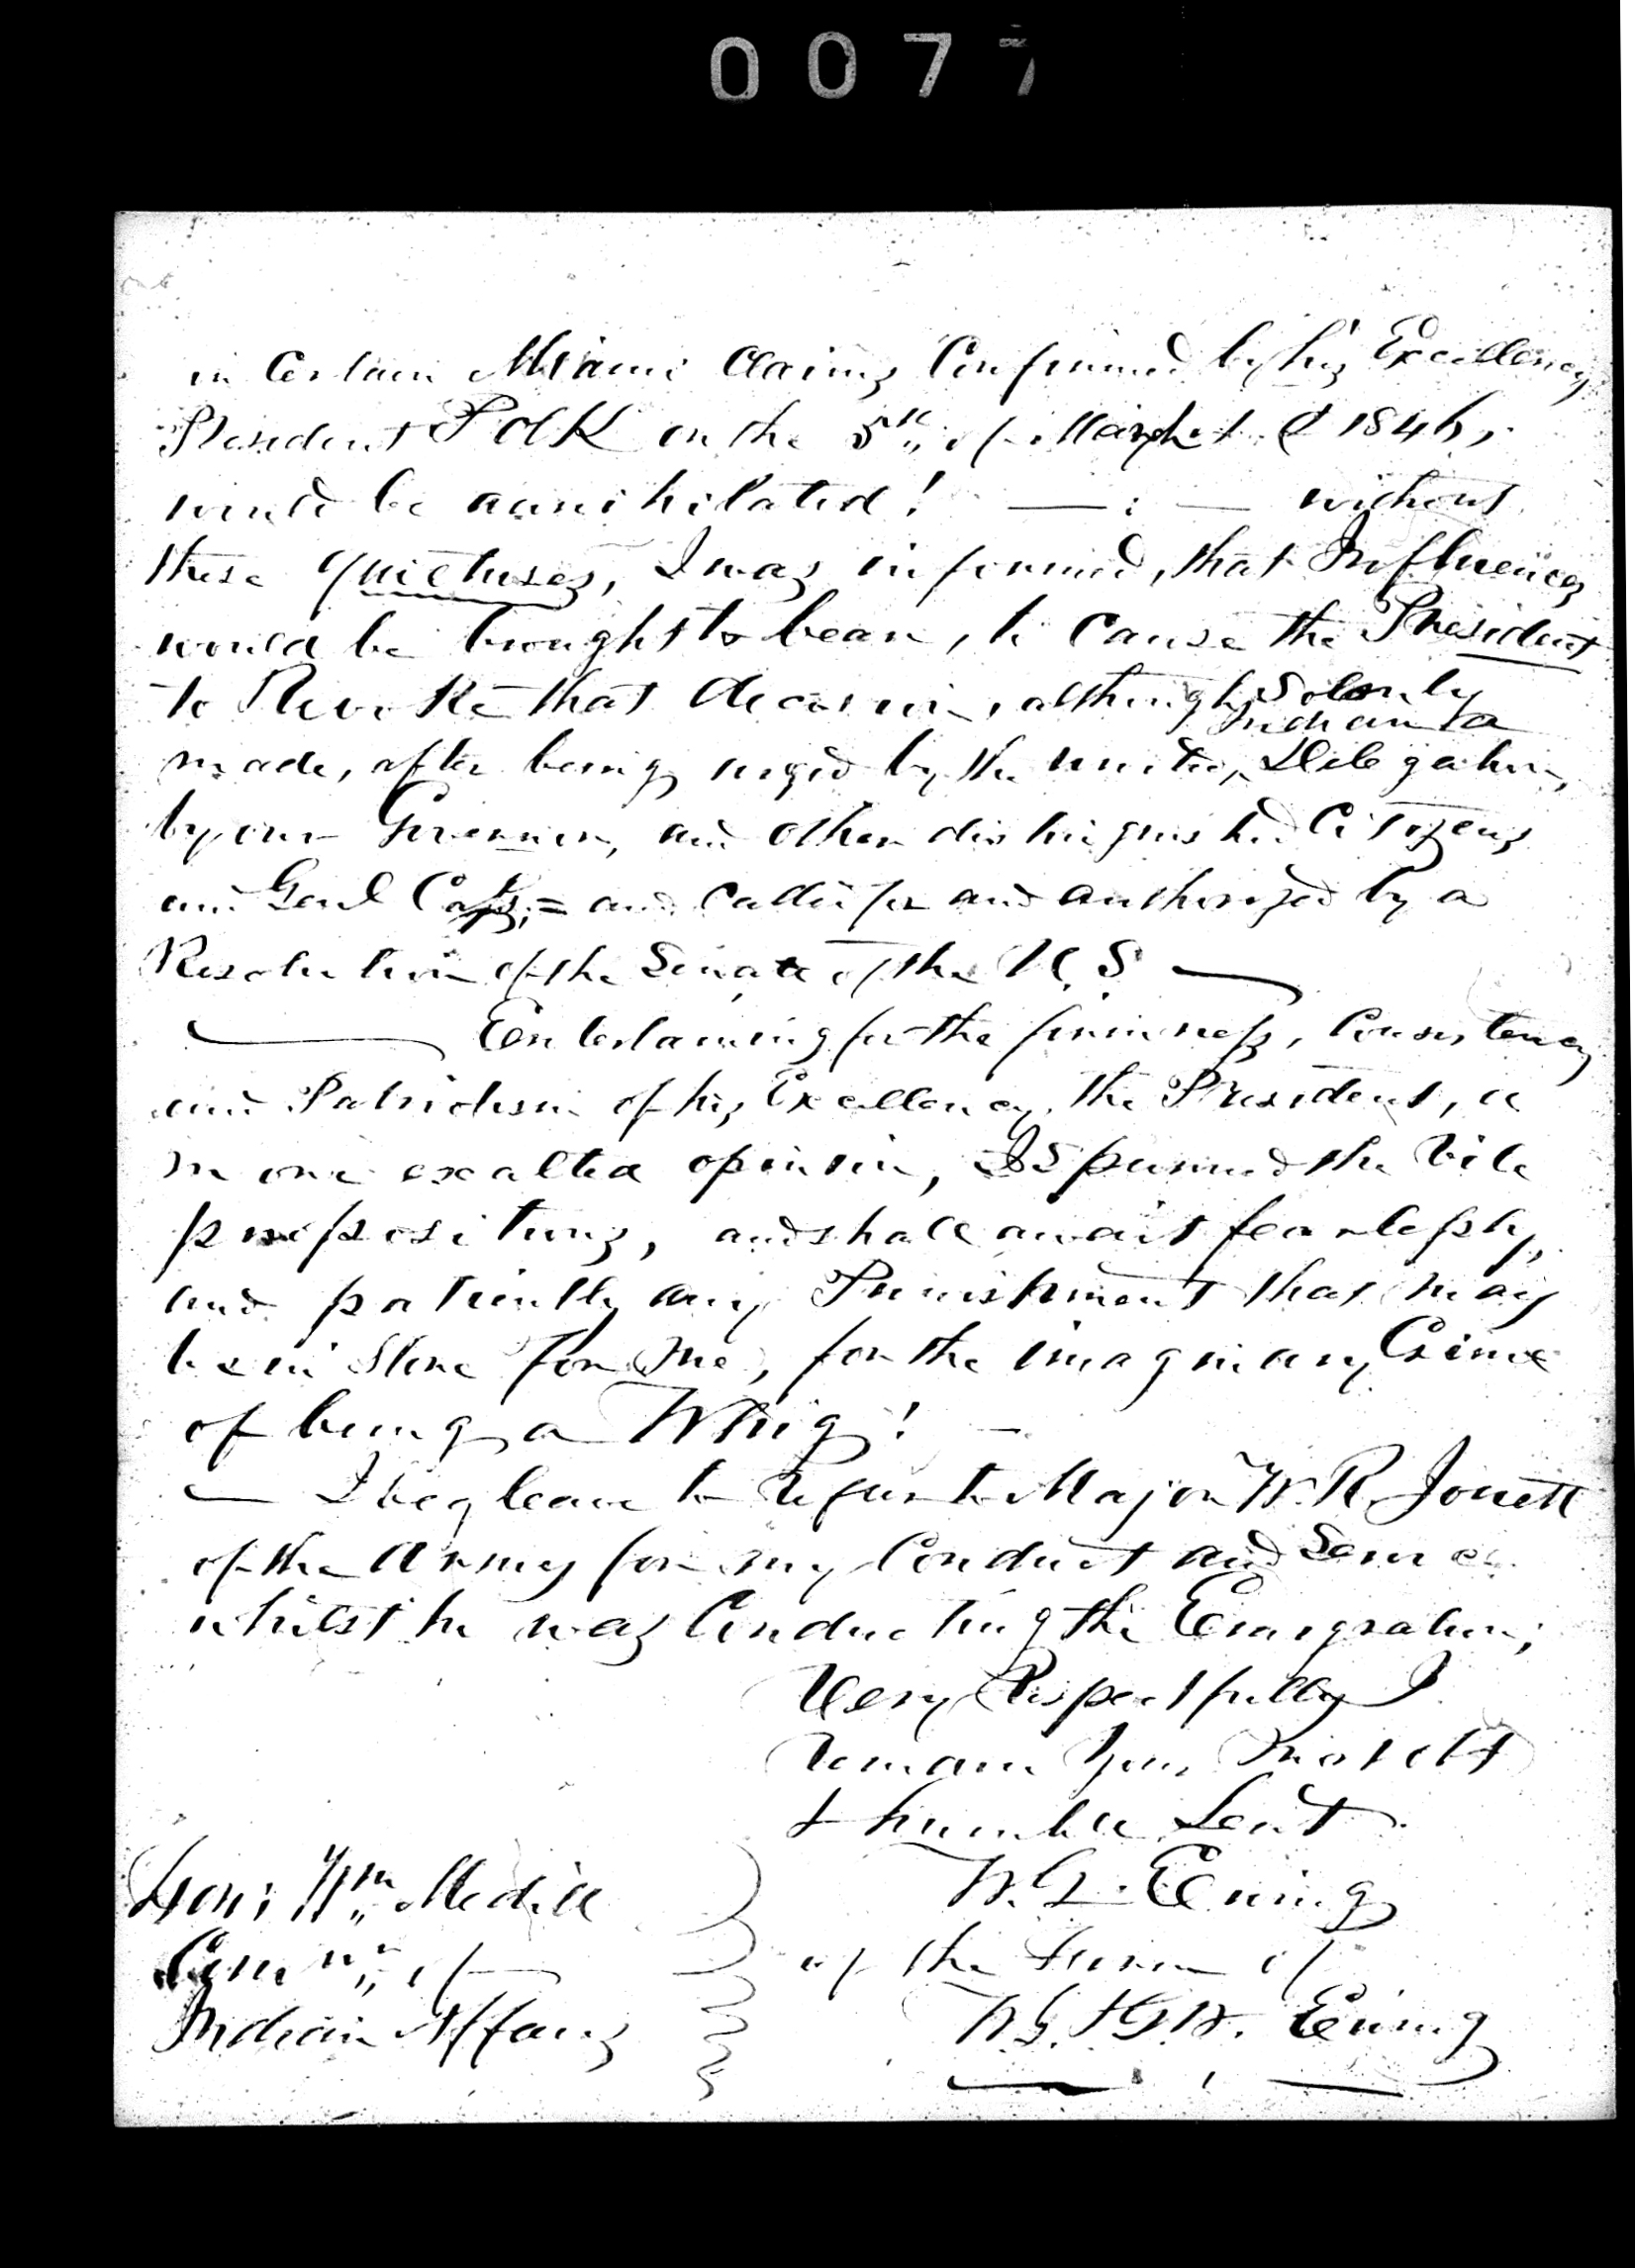 0077
in Certain Miami Claims Confirmed by his Excellency
President Polk on the 5th of March 1846,
would be annihilated! — : — without
these quietuses, I was informed, that Influences
would be brought to bear, to cause the President
to Revoke that decision, although Solemly
Indiana
made, after being urged by the united, Delegation,
by our Governor, and other distinguished Citizens
and Genl Cass, = and called for and authorized by a
Resolution of the Senate of the U.S —
— Entertaining for the firmness, Consistency
and Patriotism of his Excellency, the President, a
more exalted opinion, I Spurned the Vile
propositions, and shall await fearlessly,
and patiently any Punishment that may
be in Store for me, for the imaginary Crime
of being a Whig! —
— I beg leave to Refer to Major W. R. Jouett
of the Army for my Conduct and
whilst he was Conducting the Emigration;
Very Respectfully I
Remain Your Most Obt
& humble Sevt
Hon: Wm Medill
W. G. Ewing
Comr of
of the Firm of
Indian Affairs
W. G. & G. W. Ewing